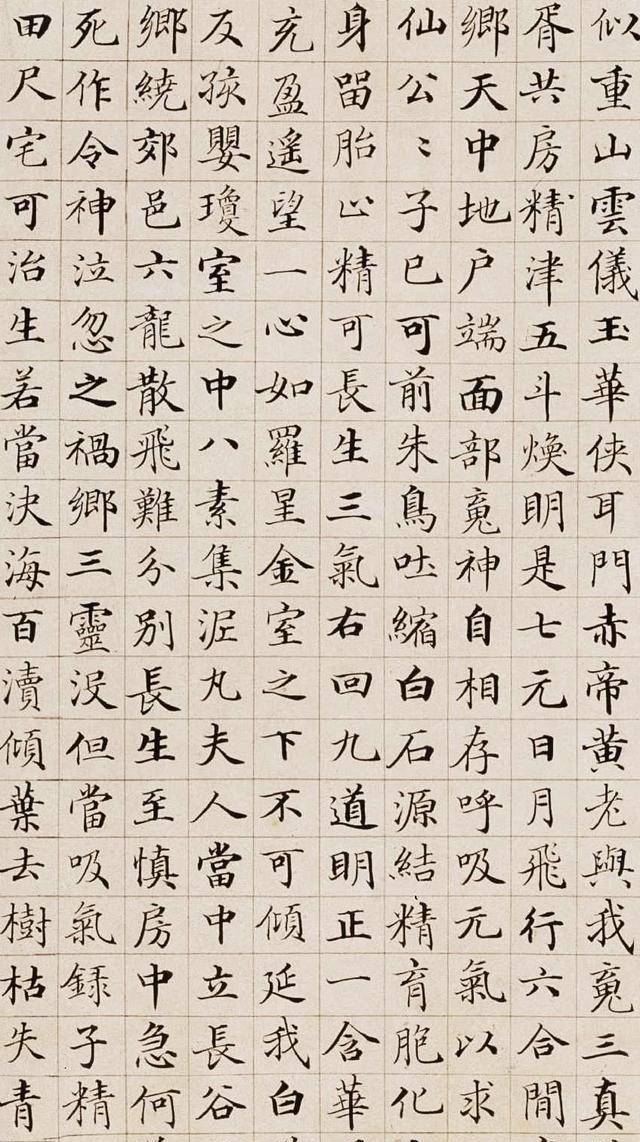 似重山雲儀玉華俠耳門赤帝黄老與我䰟三真
胥共房精津五斗煥明是七元日月飛行六合間
鄉天中地户端面部䰟神自相存呼吸元氣以求
仙公〻子已可前朱鳥吐縮白石源結精育胞化
身留胎止精可長生三氣右回九道明正一含華
充盈遥望一心如羅星金室之下不可傾延我白
反孩嬰瓊室之中八素集泥丸夫人當中立長谷
鄉繞郊邑六龍散飛難分别長生至慎房中急何
死作令神泣忽之禍鄉三靈没但當吸氣録子精
田尺宅可治生若當決海百瀆傾葉去樹枯失青